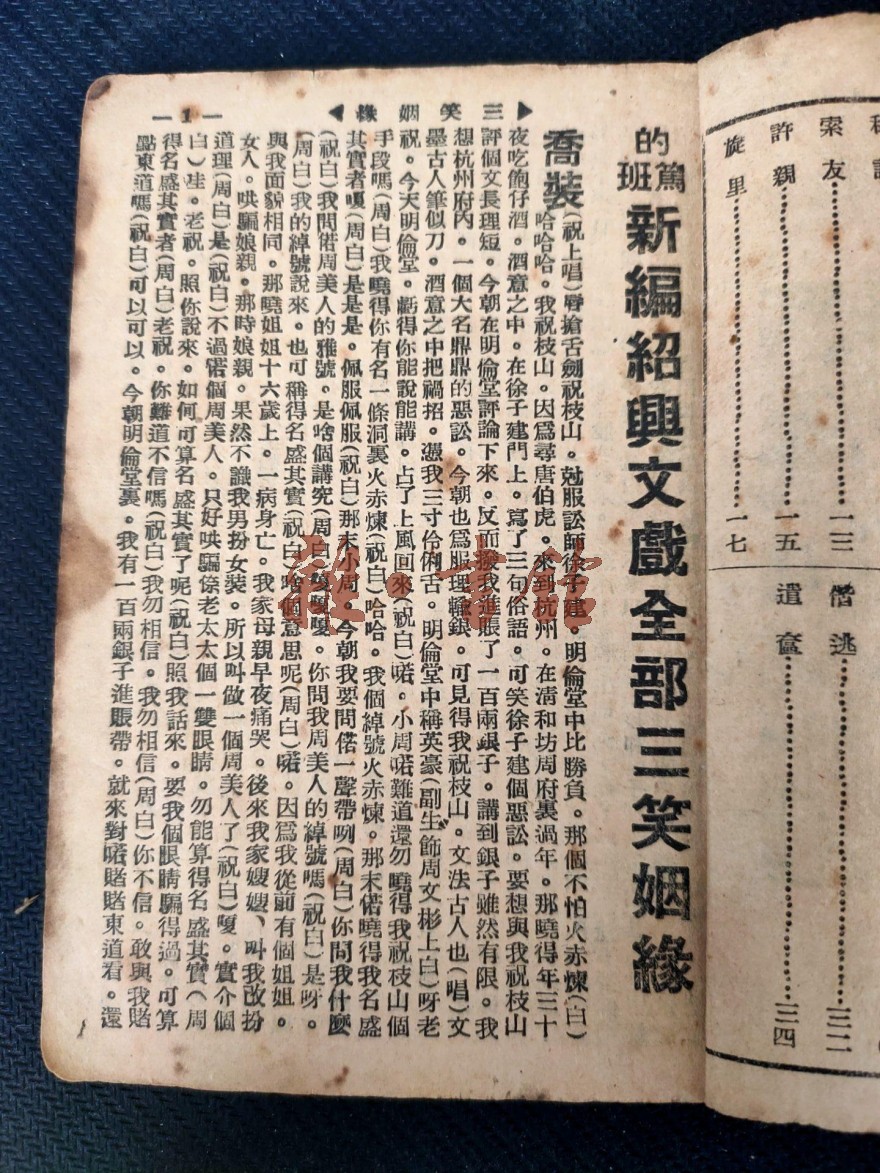 索友……一三
許親……一五
旋里……一七
偕逃……三二
遣奩……三四
的篤班
新編紹興文戲全部三笑姻緣
三笑姻緣
一1一
喬裝(祝上唱)唇搶舌劍祝枝山。尅服訟師徐子建。明倫堂中比勝負。那個不怕火赤煉(白)
哈哈哈。我祝枝山。因爲尋唐伯虎。來到杭州。在淸和坊周府裏過年。那曉得年三十
夜吃飽仔酒。酒意之中。在徐子建門上。寫了三句俗語。可笑徐子建個惡訟。要想與我祝枝山
評個文長理短。今朝在明倫堂評論下來。反而撥我進賬了一百兩銀子。講到銀子雖然有限。我
想杭州府內。一個大名鼎鼎的惡訟。今朝也爲服理輸銀。可見得我祝枝山。文法古人也(唱)文
墨古人筆似刀。酒意之中把禍招。憑我三寸伶俐舌。明倫堂中稱英豪(副生飾周文彬上白)呀老
祝。今天明倫堂。虧得你能說能講。占了上風回來(祝白)喏。小周喏難道還勿曉得我祝枝山個
手段嗎(周白)我曉得你有名一條洞裏火赤煉(祝白)哈哈。我個綽號火赤煉。那末偌曉得我名盛
其實者嗄(周白)是是是。佩服佩服(祝白)那末小周。今朝我要問偌一聲帶咧(周白)你問我什麽
(祝白)我問偌周美人的雅號。是啥個講究(周白)嗄嗄嗄。你問我周美人的綽號嗎(祝白)是呀。
(周白)我的綽號說來。也可稱得名盛其實(祝白)啥個意思呢(周白)喏。因爲我從前有個姐姐。
與我面貌相同。那曉姐姐十六歲上。一病身亡。我家母親早夜痛哭。後來我家嫂嫂、叫我改扮
女人。哄騙娘親。那時娘親。果然不識我男扮女裝。所以叫做一個周美人了(祝白)嗄。實介個
道理(周白)是(祝白)不過偌個周美人。只好哄騙偌老太太個一雙眼睛。勿能算得名盛其實(周
白)哇。老祝。照你說來。如何可算名盛其實了呢(祝白)照我話來。要我個眼睛騙得過。可算
得名盛其實者(周白)老祝。你難道不信嗎(祝白)我勿相信。我勿相信(周白)你不信。敢與我賭
點東道嗎(祝白)可以可以。今朝明倫堂裏。我有一百兩銀子進賬帶。就來對喏賭賭東道看。還